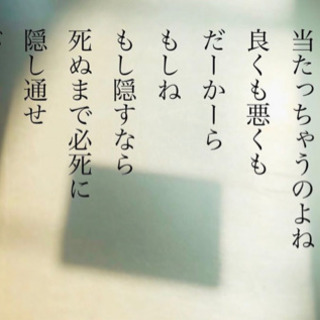 当たっちゃうのよね
良くも悪くも
だーかーら
もしね
もし隠すなら
死ぬまで必死に
隠し通せ